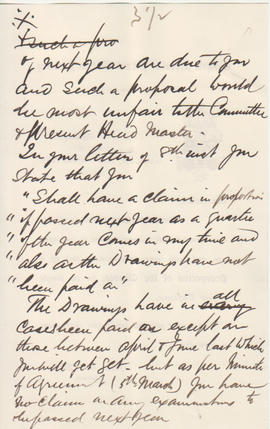 3½
such a pro
of next year are due to you
and such a proposal would
be most unfair to the Committee
& present Head Master.
In your letter of 8th inst you
State that you
"Shall have a claim in proportion
"if passed next year as a quarter
"of the year comes in my time and
"also as the Drawings have not
"been paid on"
The Drawings have in every all
Cases been paid on except on
those between April & June last which
you will get yet. but as per Minute
of Agreement (5th March) you have
no claim on any examinations to
be passed next year